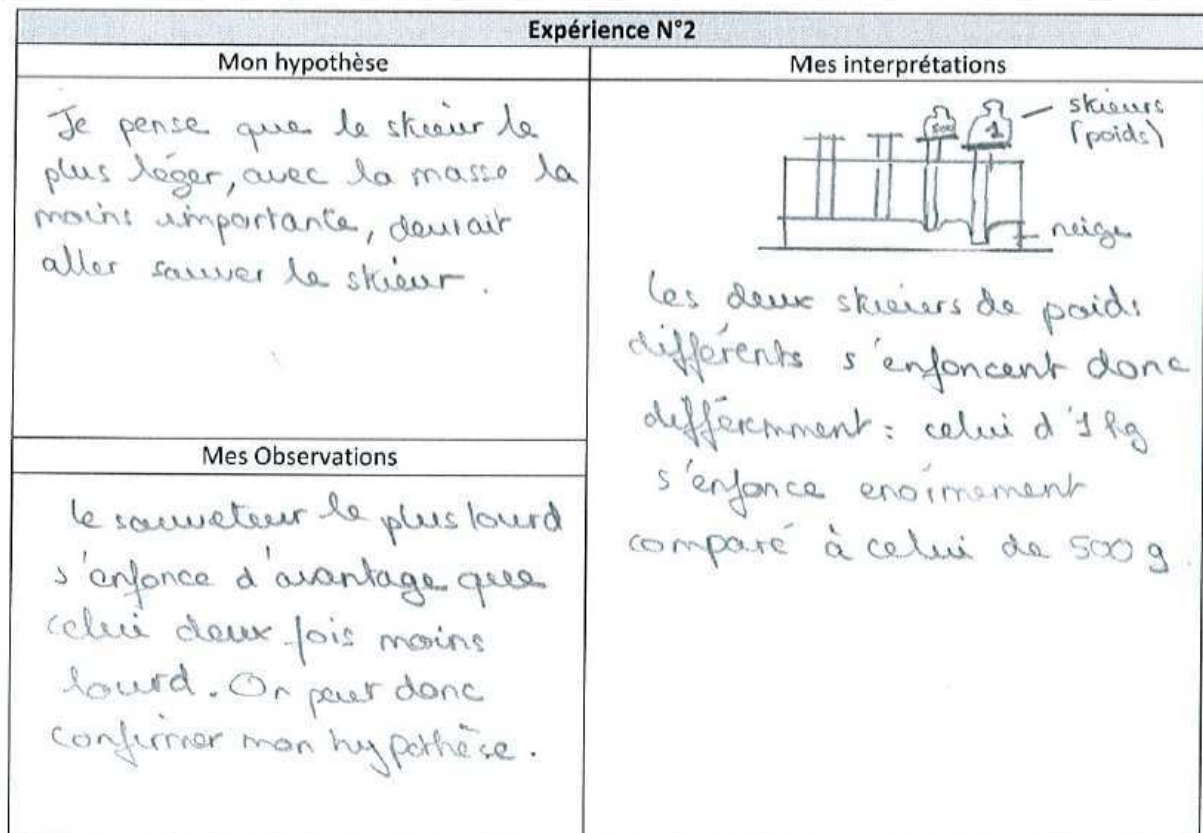 Expérience N°2
Mon hypothèse
Je pense que le skieur le
plus léger, avec la masse la
moins importante, devrait
aller sauver le skieur.
Mes Observations
le sauveteur le plus lourd
s'enfonce d'avantage que
celui deux fois moins
lourd. On peut donc
confirmer mon hypothèse.
Mes interprétations
skieurs
(poids)
500
1
neige
les deux skieiers de poids
différents s'enfoncent donc
différemment : celui d'1 kg
s'enfonce enormement
comparé à celui de 500 g.